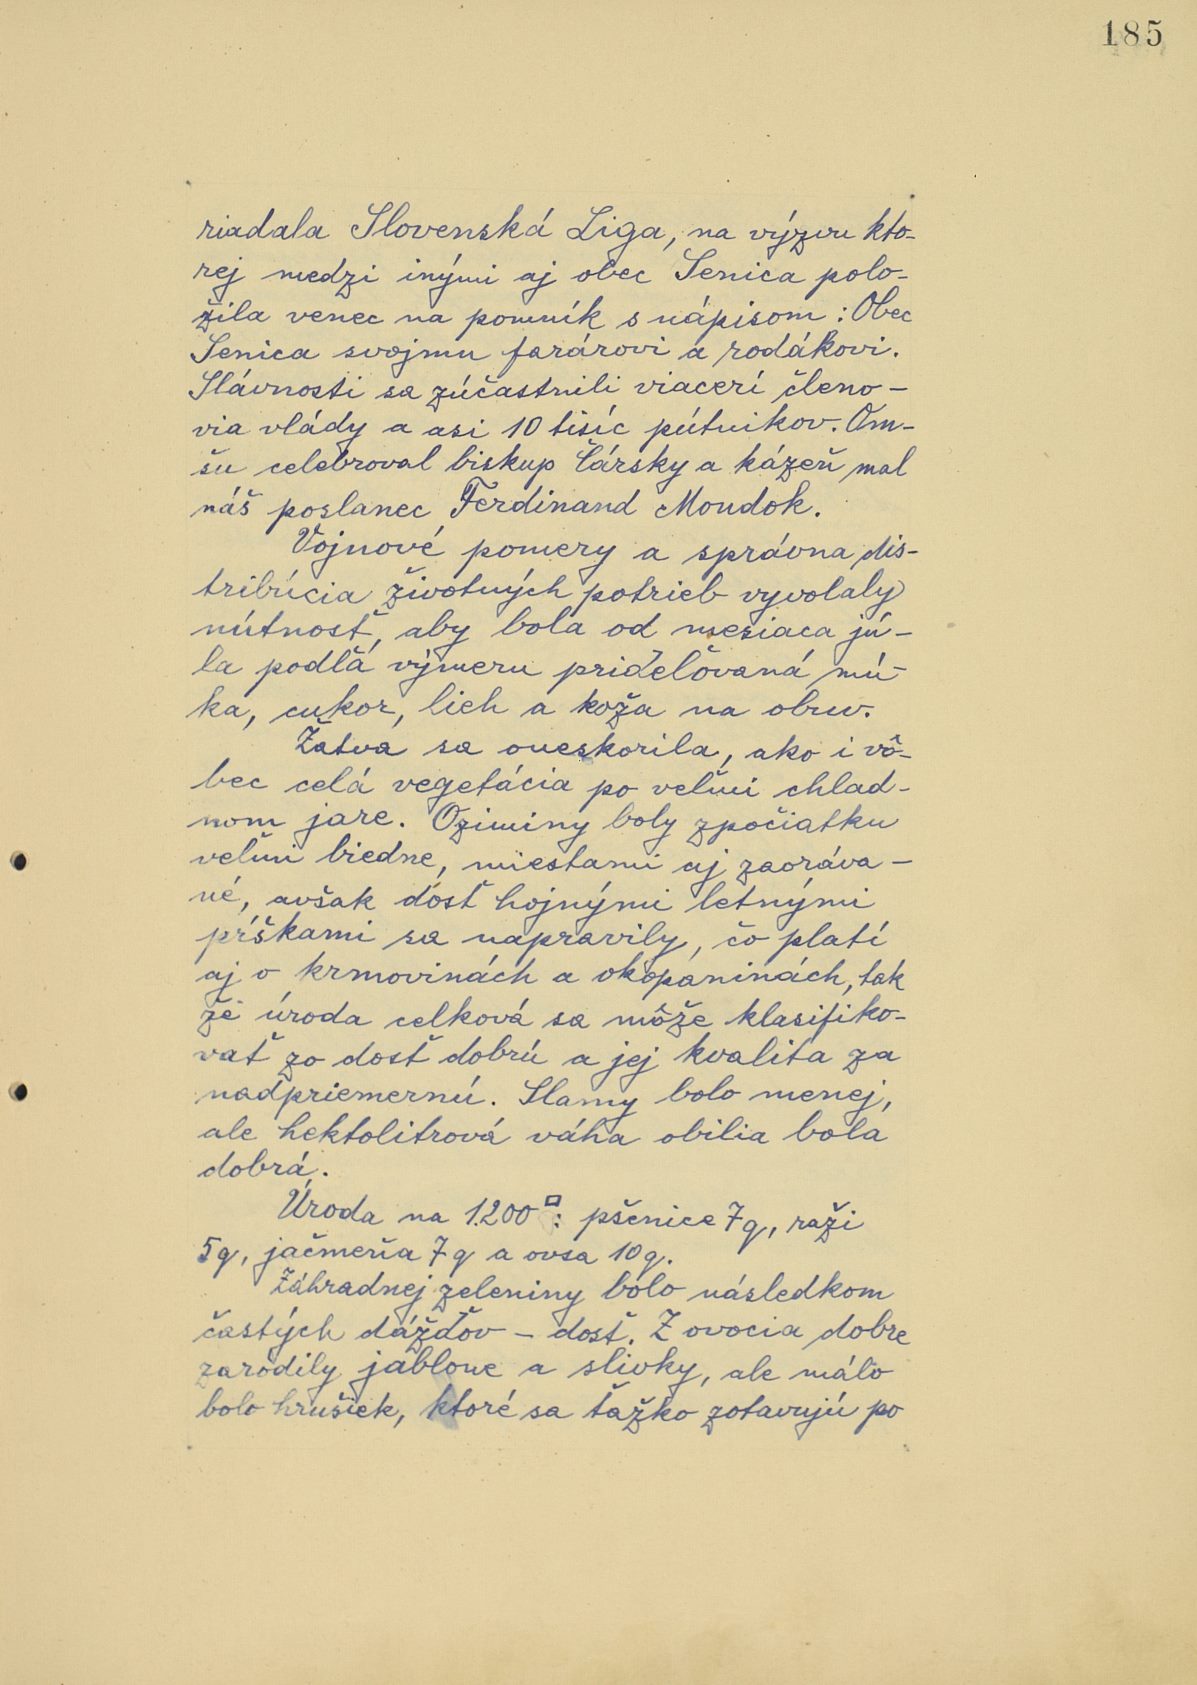 185
riadala Slovenská Liga, na výzvu kto-
rej medzi inými aj obec Senica polo-
žila venec na pomník s nápisom: Obec
Senica svojmu farárovi a rodákovi.
Slávnosti sa zúčastnili viacerí členo-
via vlády a asi 10 tisíc pútnikov. Om-
šu celebroval biskup Čársky a kázeň mal
náš poslanec Ferdinand Mondok.
Vojnové pomery a správna dis-
tribúcia životných potrieb vyvolaly
nútnosť, aby bola od mesiaca jú-
la podľa výmeru prideľovaná mú-
ka, cukor, lieh a koža na obuv.
Žatva sa oneskorila, ako i vô-
bec celá vegetácia po veľmi chlad-
nom jare. Oziminy boly zpočiatku
veľmi biedne, miestami aj zaoráva-
né, avšak dosť hojnými letnými
pŕškami sa napravily, čo platí
aj o krmovinách a okopáninách, tak
že úroda celková sa môže klasifiko-
vať zo dosť dobrú a jej kvalita za
nadpriemernú. Slamy bolo menej,
ale hektolitrová váha obilia bola
dobrá.
Úroda na 1.200□: pšenice 7 q, raži
5 q, jačmeňa 7 q a ovsa 10 q.
Záhradnej zeleniny bolo následkom
častých dážďov – dosť. Z ovocia dobre
zarodily jablone a slivky, ale málo
bolo hrušiek, ktoré sa ťažko zotavujú po